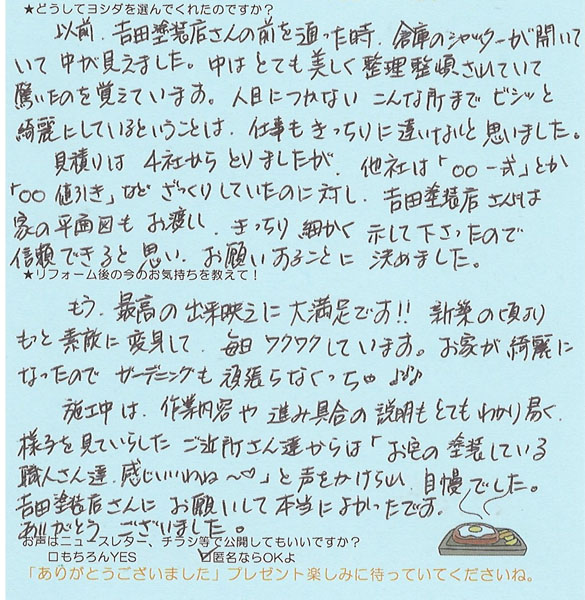 ★どうしてヨシダを選んでくれたのですか？
以前、吉田塗装店さんの前を通った時、倉庫のシャッターが開いて
いて中が見えました。中はとても美しく整理整頓されていて
驚いたのを覚えています。人目につかない こんな所まで ビシッと
綺麗にしているということは、仕事もきっちりに違いないと思いました。
見積りは 4社から とりましたが、他社は「○○一式」とか
「○○ 値引き」など ざっくりしていたのに対し、吉田塗装店さんは
家の平面図も お渡し、きっちり 細かく 示して下さったので
信頼できると 思い、お願いすることに 決めました。
★リフォーム後の今のお気持ちを教えて！
もう、最高の出来映えに大満足です!! 新築の頃より
もっと素敵に変身して、毎日 ワクワクしています。お家が綺麗に
なったので ガーデニングも 頑張らなくっちゃ ♪♪♪
施工中は、作業内容や進み具合の説明もとてもわかり易く、
様子を見ていらした ご近所さん達からは「お宅の塗装している
職人さん達、感じいいわね〜♡」と声をかけられ、自慢でした。
吉田塗装店さんに お願いして本当によかったです。
ありがとう ございました。
お声はニュースレター、チラシ等で公開してもいいですか？
□もちろんYES ☑匿名ならOKよ
「ありがとうございました」プレゼント楽しみに待っていてくださいね。